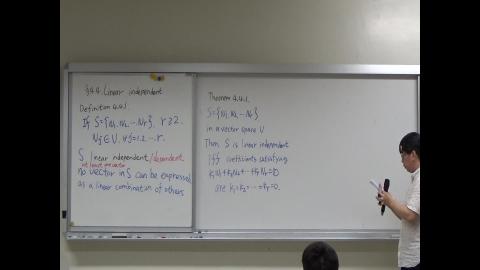 §4.4. Linear independent
Definition 4.4.1.
If S={v₁, v₂, ... vᵣ}, r≥2.
vⱼ∈V, ∀j=1.2...r.
S linear independent/dependent
at least one vector
no vector in S can be expressed
as a linear combination of others
Theorem 4.4.1.
S={v₁, v₂, ... vᵣ}
in a vector space V
Then S is linear independent
iff coefficients satisfying
k₁v₁+k₂v₂+...+kᵣvᵣ=0
are k₁=k₂=...=kᵣ=0.